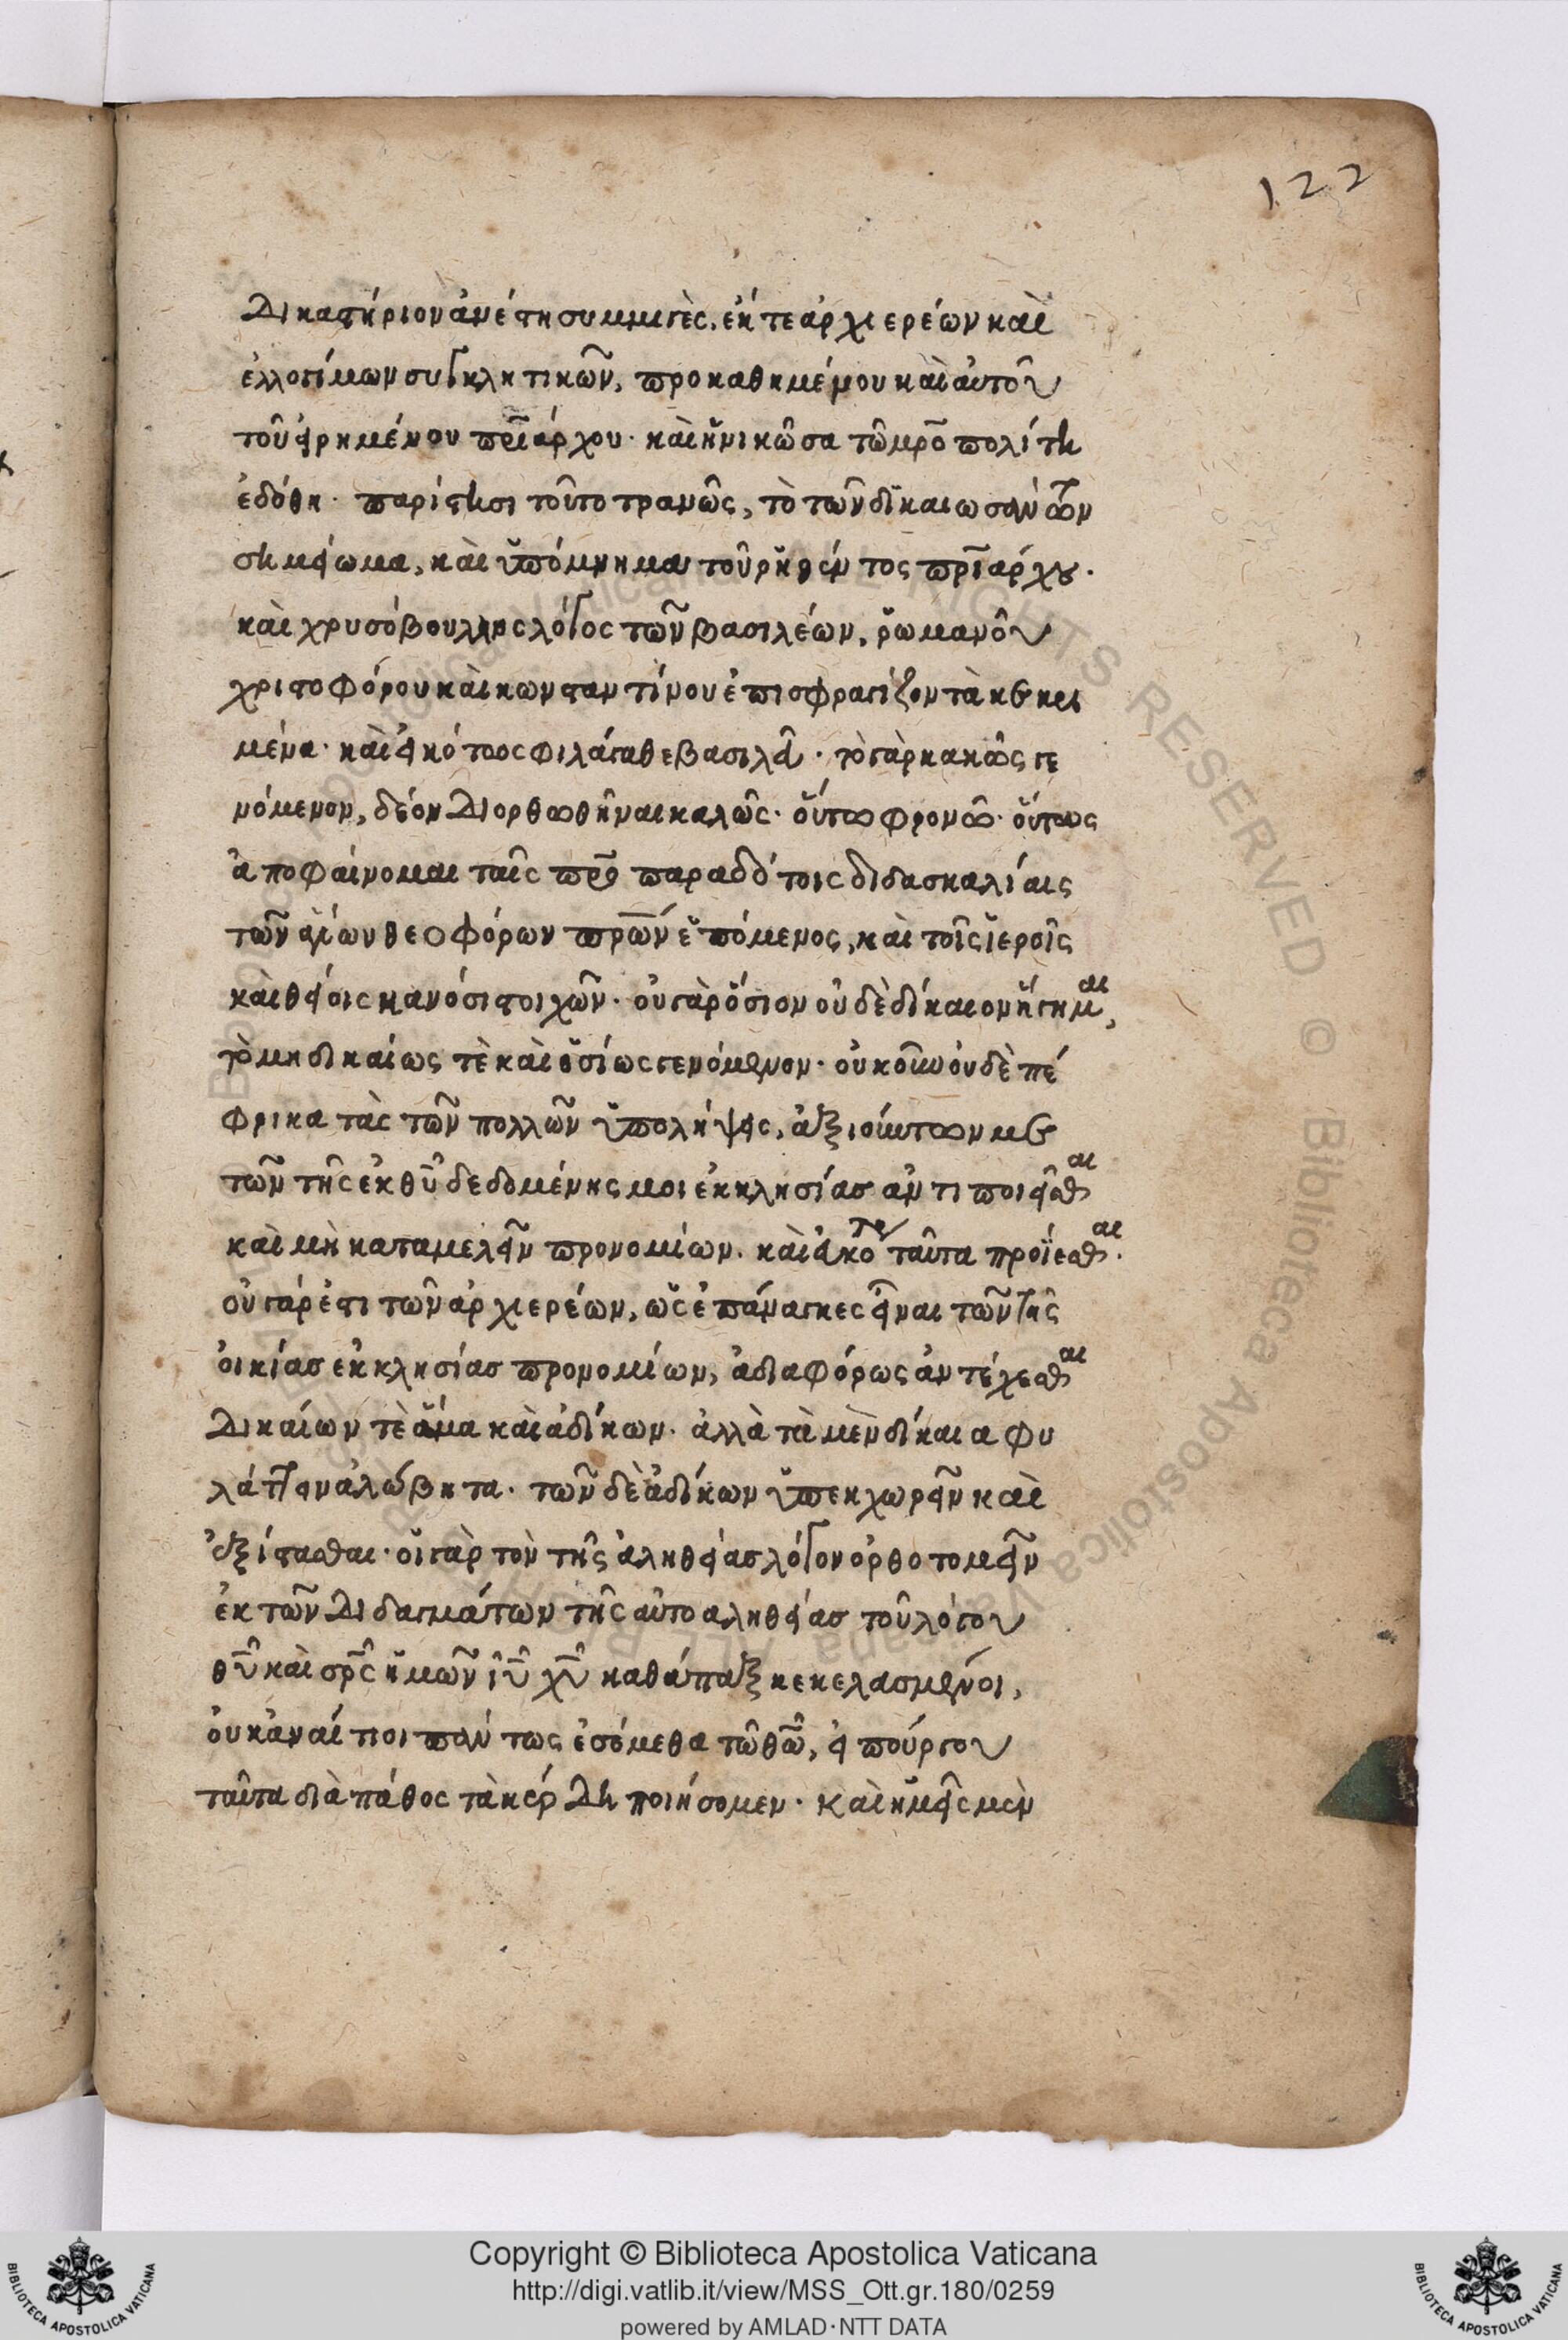 122
δικαστήριον ἀνέστη συμμιγὲς, ἐκ τε ἀρχιερέων καὶ
ἐλλογίμων συγκλητικῶν, προκαθημένου καὶ αὐτοῦ
τοῦ εἰρημένου πριάρχου· καὶ ἡ νικῶσα τῶ μρο πολίτη
ἐδόθη· παρίστησι τοῦτο τρανῶς, τὸ τῶν δικαιωσάντων
σημείωμα, καὶ ὑπόμνημα τοῦ ῥηθέντος πριάρχου·
καὶ χρυσόβουλλος λόγος τῶν βασιλέων, ῥωμανοῦ
χριστοφόρου καὶ κωνσταντίνου ἐπισφραγίζον τὰ κεκρι
μένα· καὶ εἰκότως φιλάγαθε βασιλεῦ· τὸ γὰρ κακῶς γε
νόμενον, δέον διορθωθῆναι καλῶς· οὕτω φρονῶ· οὕτως
ἀποφαίνομαι ταῖς πρ παραδότοις διδασκαλίαις
τῶν ἁγίων θεοφόρων πρων ἑπόμενος, καὶ τοῖς ἱεροῖς
καὶ θείοις κανόσι στοιχῶν· οὐ γὰρ ὅσιον οὐδὲ δίκαιον ἥγημαι,
τὸ μὴ δικαίως τὲ καὶ ὁσίως γενόμενον· οὔκουν οὐδὲ πέ
φρικα τὰς τῶν πολλῶν ὑπολήψεις, ἀξιούντων με
τῶν τῆς ἐκ θυ δεδομένης μοι ἐκκλησίας ἀντιποιεῖσθαι
καὶ μὴ καταμελεῖν προνομίων· καὶ εἰκότως ταῦτα προΐεσθαι·
οὐ γάρ ἐστι τῶν ἀρχιερέων, ὡς ἐπάναγκες εἶναι τῶν τῆς
οἰκίας ἐκκλησίας προνομίων, ἀδιαφόρως ἀντέχεσθαι
δικαίων τὲ ἅμα καὶ ἀδίκων· ἀλλὰ τὰ μὲν δίκαια φυ
λάττειν ἀλώβητα· τῶν δὲ ἀδίκων ὑπεκχωρεῖν καὶ
ἐξίστασθαι· οἱ γὰρ τὸν τῆς ἀληθείας λόγον ὀρθοτομεῖν
ἐκ τῶν διδαγμάτων τῆς αὐτοαληθείας τοῦ λόγου
θυ καὶ σρς ἡμῶν ιυ χυ καθάπαξ κεκελασμένοι,
οὐκ ἀναίτιοι πάντως ἐσόμεθα τῶ θῶ, εἴ που ἔργου
ταῦτα διὰ πάθος τὰ κέρδη ποιήσομεν· καὶ ἡμεῖς μὲν
Copyright © Biblioteca Apostolica Vaticana
http://digi.vatlib.it/view/MSS_Ott.gr.180/0259
powered by AMLAD·NTT DATA